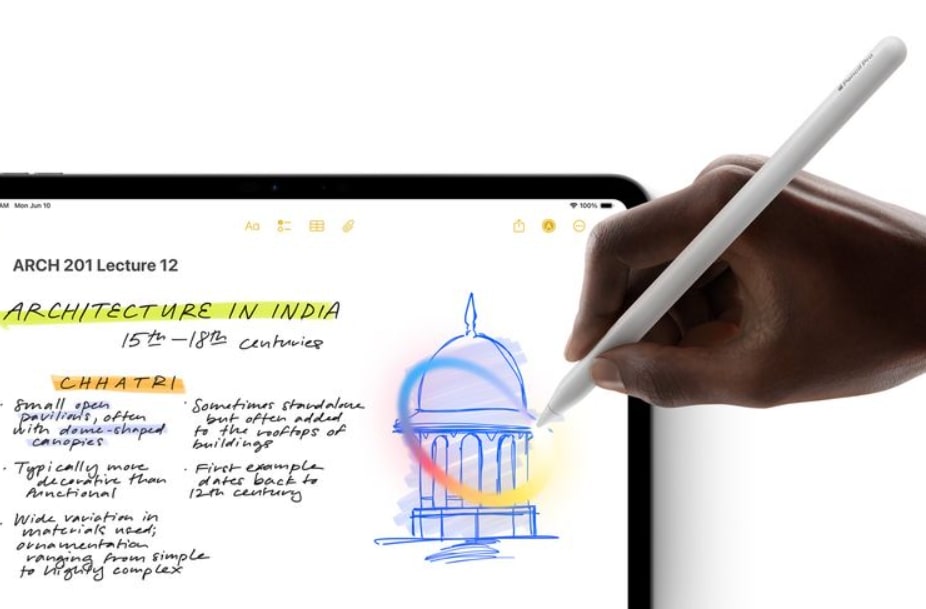 AM Mon Jun 10
100%
Aa
ARCH 201 Lecture 12
ARCHITECTURE IN INDIA
15th – 18th centuries
CHHATRI
· Small open
pavilions, often
with dome-shaped
canopies
· Typically more
decorative than
functional
· Wide variation in
materials used;
ornamentation
ranging from simple
to highly complex
· Sometimes standalone
but often added
to the rooftops of
buildings
· First example
dates back to
12th century
Pencil Pro